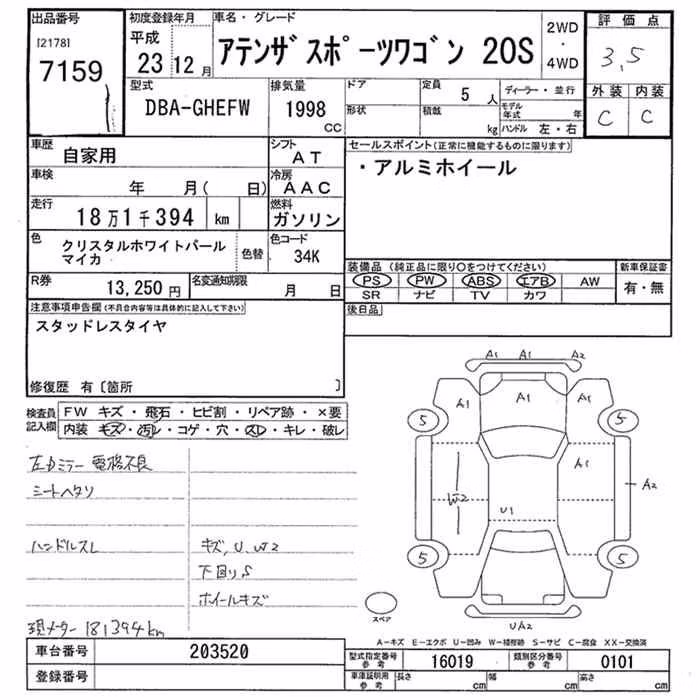 出品番号
[2178]
7159
初度登録年月
平成
23 12月
車名・グレード
アテンザスポーツワゴン 20S
2WD
・
4WD
評価点
3,5
外装 内装
C C
型式
DBA-GHEFW
排気量
1998
CC
ドア
形状
定員
5 人
積載
kg
ディーラー・並行
モデル年式 年
ハンドル 左・右
車歴
自家用
シフト
AT
車検
年 月( 日)
冷房
AAC
走行
18万1千394 km
燃料
ガソリン
色
クリスタルホワイトパール
マイカ
色替
色コード
34K
R券
13,250 円
名変通知期限
月 日
セールスポイント(正常に機能するものに限ります)
・アルミホイール
装備品(純正品に限り○をつけてください)
PS PW ABS エアB AW
SR ナビ TV カワ
新車保証書
有・無
後日品
注意事項申告欄(不具合内容等は具体的に記入して下さい)
スタッドレスタイヤ
修復歴 有〔箇所 〕
検査員
記入欄
FW キズ・飛石・ヒビ割・リペア跡・×要
内装 キズ・汚レ・コゲ・穴・スレ・キレ・破レ
左カミラー電格不良
シートヘタリ
ハンドルスレ
キズ,U,W2
下回りS
ホイールキズ
現メーター181394km
A1 A1 A2
A1 A1 A1
5 5
A1
W2
A2
U1
5 5
UA2
スペア
A-キズ E-エクボ U-凹み W-補修跡 S-サビ C-腐食 XX-交換済
車台番号
203520
登録番号
型式指定番号
参考
16019
類別区分番号
参考
0101
車庫証明用
参考
長さ cm
幅 cm
高さ cm